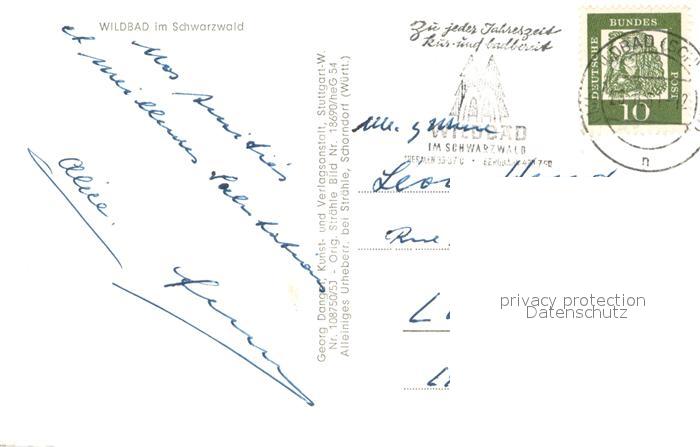 WILDBAD im Schwarzwald
Nos amitiés
et meilleures salutations
Alice.
Georg Danger, Kunst- und Verlagsanstalt, Stuttgart-W.
Nr. 108750/53 - Orig. Strähle Bild Nr. 18690/heG 54
Alleiniges Urheberr. bei Strähle, Schorndorf (Württ.)
Zu jeder Jahreszeit
kur- und badbereit
WILDBAD
IM SCHWARZWALD
DEUTSCHE BUNDESPOST
10
n
Mr. & Mme
Rue
privacy protection
Datenschutz